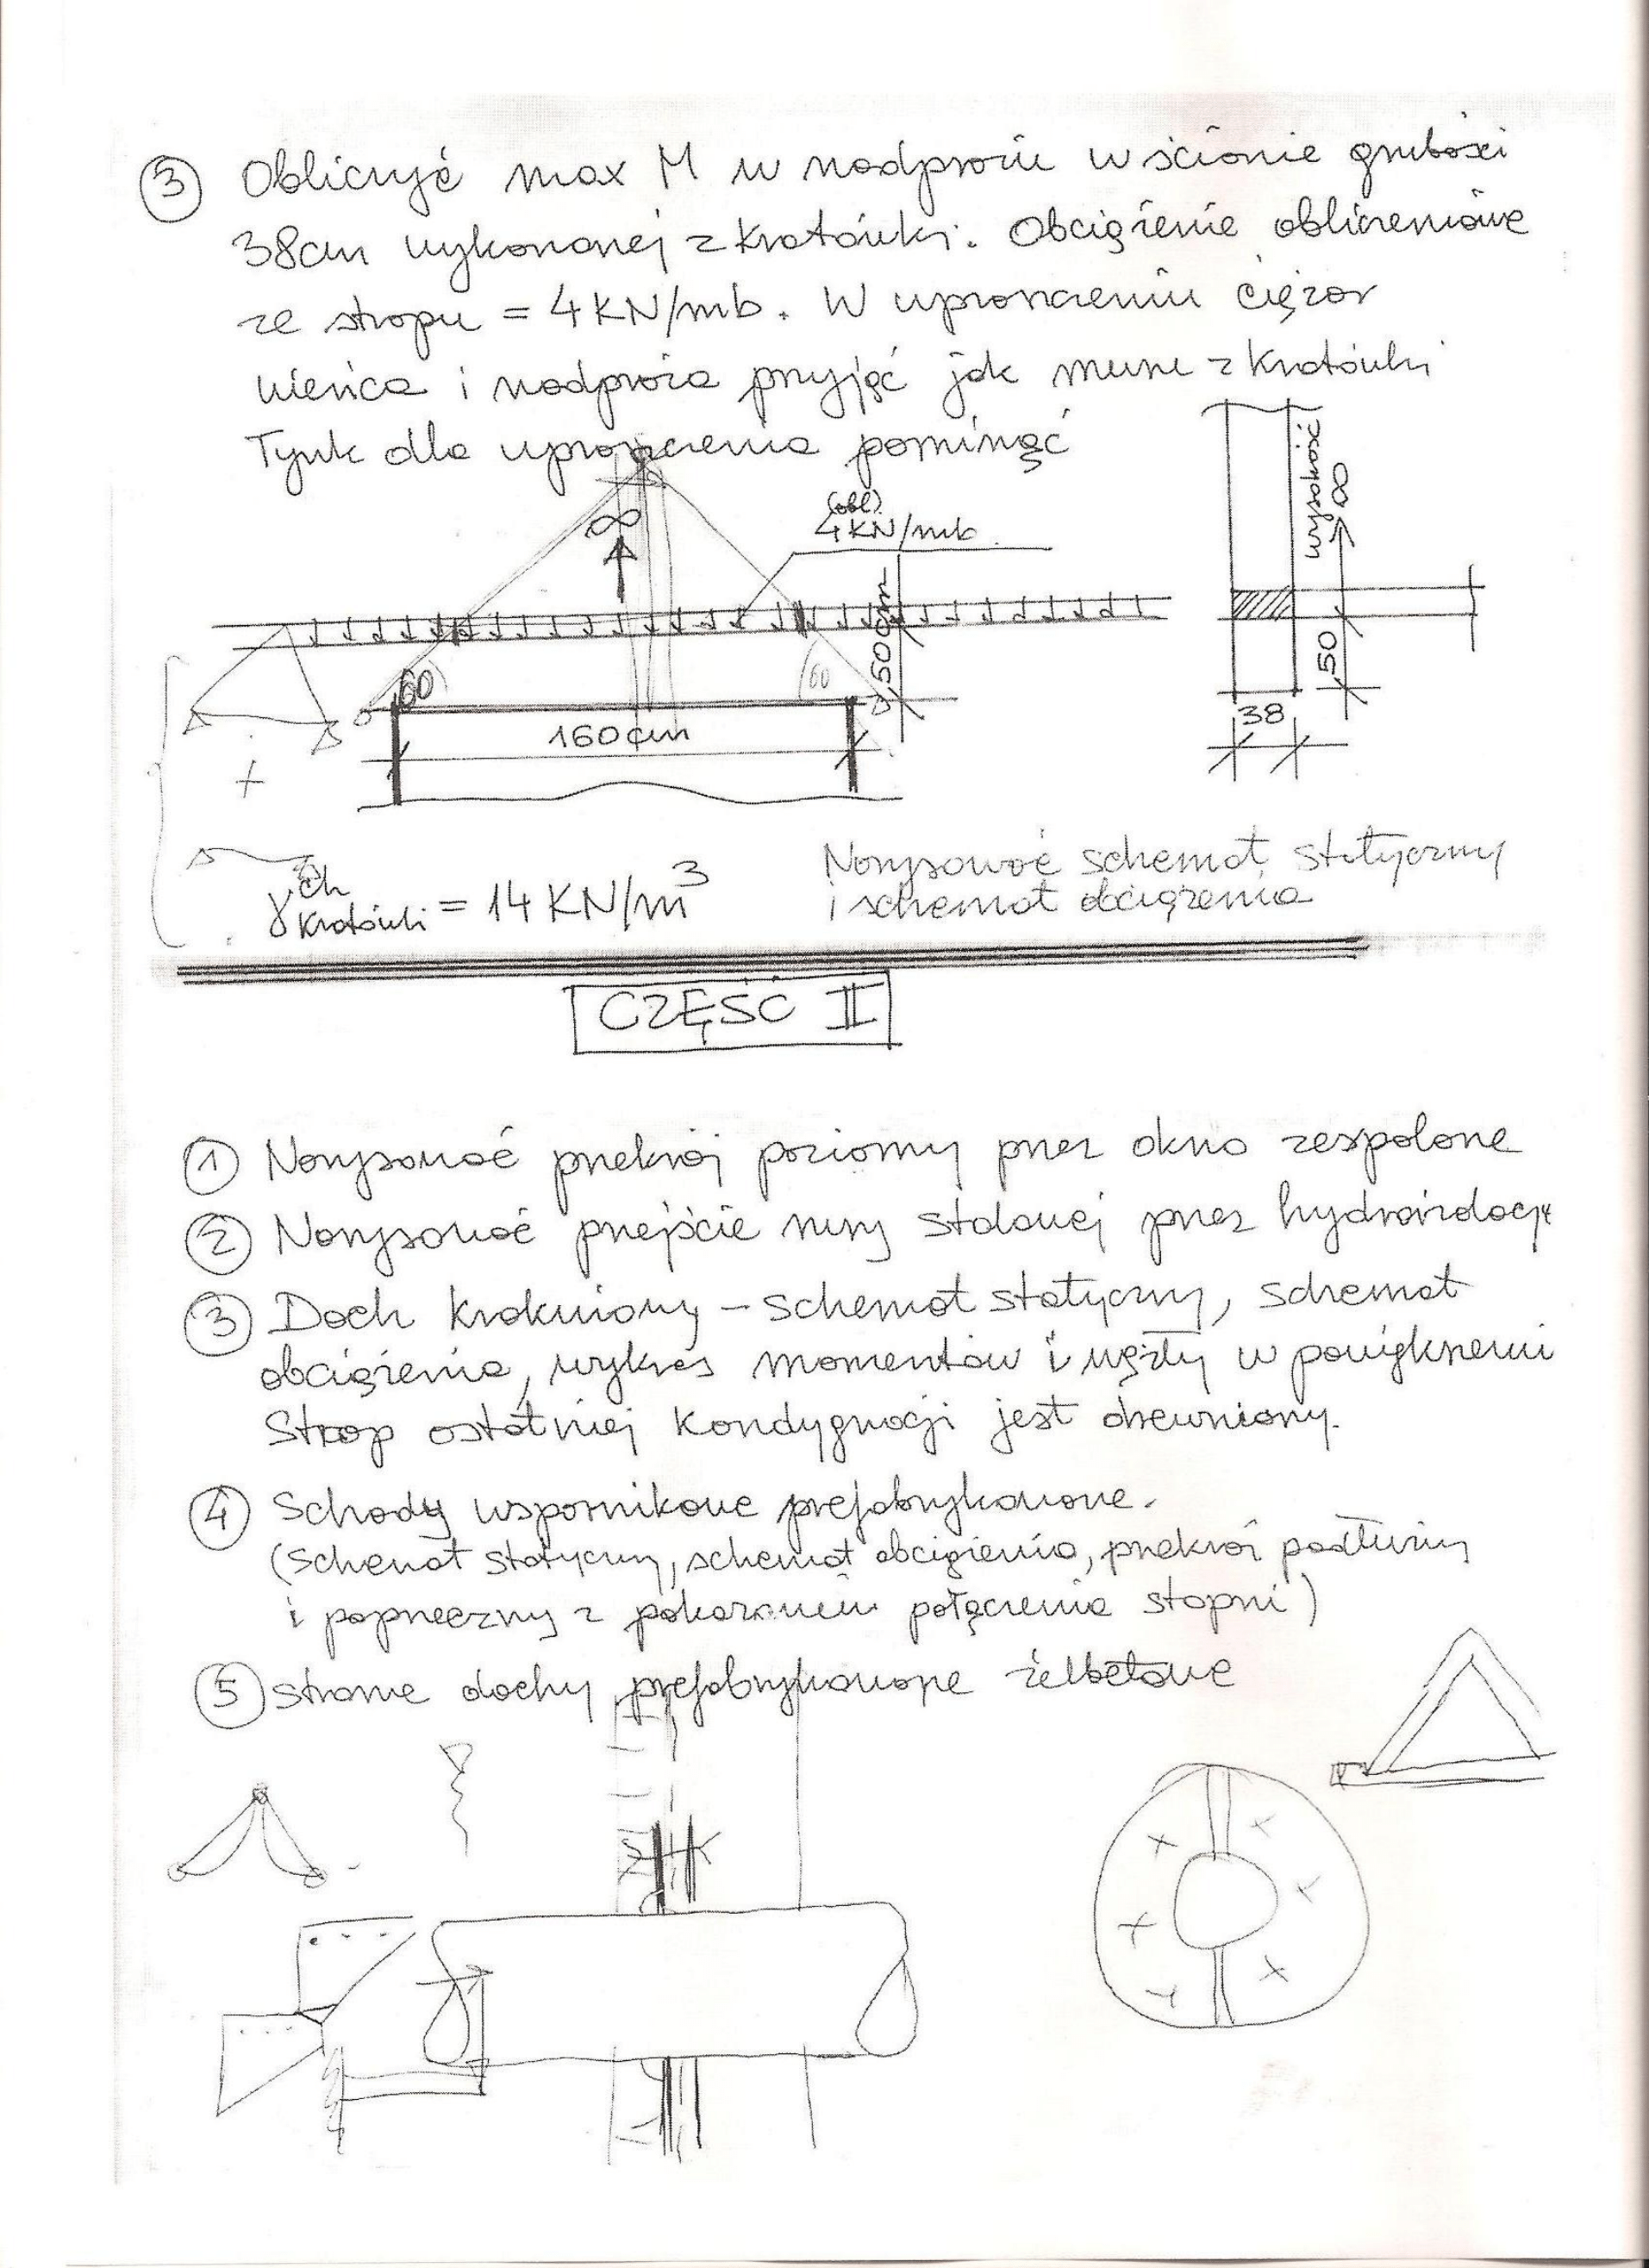 ③ Obliczyć max M w nadprożu w ścianie grubości
38cm wykonanej z kratówki. Obciążenie obliczeniowe
ze stropu = 4KN/mb. W uproszczeniu ciężar
wieńca i nadproża przyjąć jak muru z kratówki
Tynk dla uproszczenia pominąć
wysokość ∞
(obl).
4KN/mb
∞
50cm
60
60
50
160cm
38
+
γ ch kratówki = 14 KN/m³
Narysować schemat statyczny
i schemat obciążenia
CZĘŚĆ II
① Narysować przekrój poziomy przez okno zespolone
② Narysować przejście rury stalowej przez hydroizolację
③ Dach krokwiowy – schemat statyczny, schemat
obciążenia, wykres momentów i węzły w powiększeniu
Strop ostatniej kondygnacji jest drewniany.
④ Schody wspornikowe prefabrykowane.
(Schemat statyczny, schemat obciążenia, przekrój podłużny
i poprzeczny z pokazaniem połączenia stopni)
⑤ strome dachy prefabrykowane żelbetowe